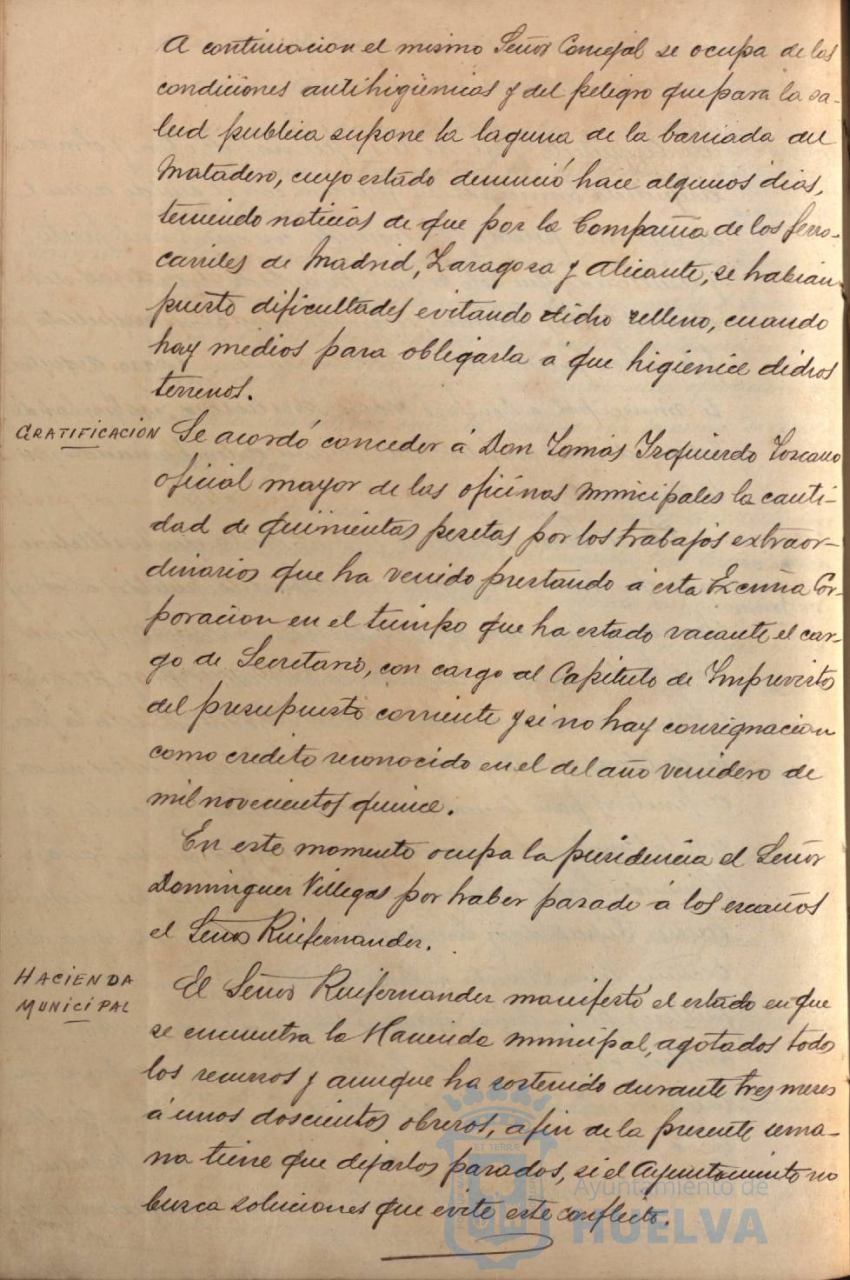 A continuacion el mismo Señor Concejal se ocupa de las
condiciones antihigiénicas y del peligro que para la sa-
lud publica supone la laguna de la barriada del
Matadero, cuyo estado denunció hace algunos dias,
teniendo noticias de que por la Compañia de los ferro-
carriles de Madrid, Zaragoza y Alicante, se habian
puesto dificultades evitando dicho relleno, cuando
hay medios para obligarla á que higienice dichos
terrenos.
GRATIFICACIÓN
Se acordó conceder á Don Tomás Izquierdo Toscano
oficial mayor de las oficinas municipales la canti-
dad de quinientas pesetas por los trabajos extraor-
dinarios que ha venido prestando á esta Excma Cor-
poracion en el tiempo que ha estado vacante el car-
go de Secretario, con cargo al Capitulo de Imprevistos
del presupuesto corriente y si no hay consignacion
como credito reconocido en el del año venidero de
mil novecientos quince.
En este momento ocupa la presidencia el Señor
Dominguez Villegas por haber pasado á los escaños
el Señor Ruifernandez.
HACIENDA
MUNICIPAL
El Señor Ruifernandez manifestó el estado en que
se encuentra la Hacienda municipal, agotados todos
los recursos y aunque ha sostenido durante tres meses
á unos doscientos obreros, afin de la presente sema-
na tiene que dejarlos parados, si el Ayuntamiento no
busca soluciones que evite este conflicto.
Ayuntamiento de
HUELVA